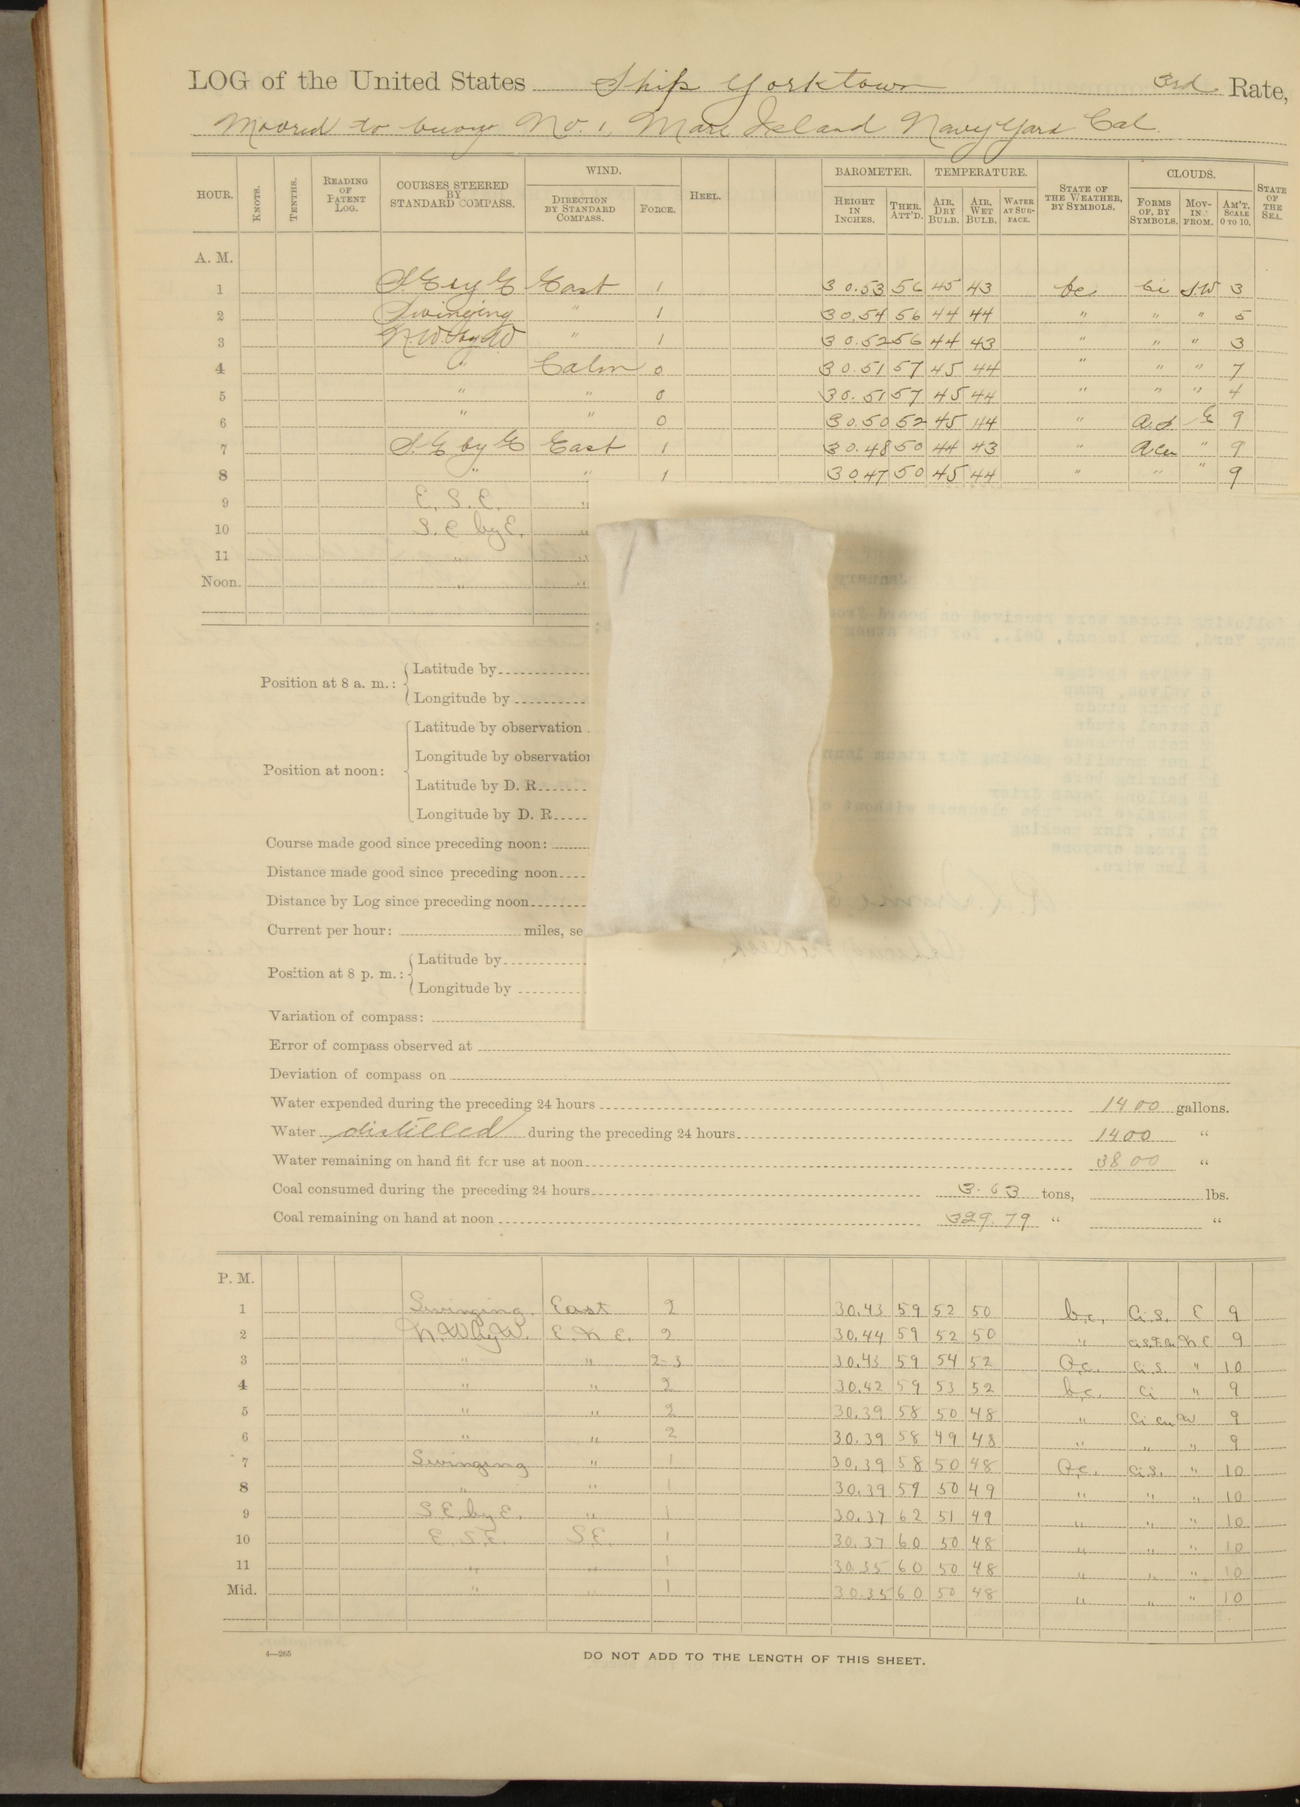 LOG of the United States Ship Yorktown 3rd Rate,
Moored to buoy No. 1, Mare Island Navy Yard Cal.
HOUR. KNOTS. TENTHS. READING OF PATENT LOG. COURSES STEERED BY STANDARD COMPASS. WIND. DIRECTION BY STANDARD COMPASS. FORCE. HEEL. BAROMETER. HEIGHT IN INCHES. THER. ATT'D. TEMPERATURE. AIR, DRY BULB. AIR, WET BULB. WATER AT SURFACE. STATE OF THE WEATHER, BY SYMBOLS. CLOUDS. FORMS OF, BY SYMBOLS. MOVING FROM. AM'T. SCALE 0 TO 10. STATE OF THE SEA.
A. M.
1 S.E by E East 1 30.53 56 45 43 bc Ci S.W 3
2 Swinging " 1 30.54 56 44 44 " " " 5
3 N.W. by W " 1 30.52 56 44 43 " " " 3
4 " Calm 0 30.51 57 45 44 " " " 7
5 " " 0 30.51 57 45 44 " " " 4
6 " " 0 30.50 52 45 44 " E 9
7 S.E by E East 1 30.48 50 44 43 " " 9
8 " " 1 30.47 50 45 44 " " " 9
9 E. S. E. "
10 S. E by E. "
11 " "
Noon. " "
Position at 8 a. m.: Latitude by
Longitude by
Position at noon: Latitude by observation
Longitude by observation
Latitude by D. R.
Longitude by D. R.
Course made good since preceding noon:
Distance made good since preceding noon
Distance by Log since preceding noon
Current per hour: miles, se
Position at 8 p. m.: Latitude by
Longitude by
Variation of compass:
Error of compass observed at
Deviation of compass on
Water expended during the preceding 24 hours 1400 gallons.
Water distilled during the preceding 24 hours 1400 "
Water remaining on hand fit for use at noon 3800 "
Coal consumed during the preceding 24 hours 3.63 tons, lbs.
Coal remaining on hand at noon 329.79 " "
P. M.
1 Swinging East 2 30.43 59 52 50 b.c. Ci.S. E 9
2 N.W. by W. E. N. E. 2 30.44 59 52 50 " N E 9
3 " " 2-3 30.43 59 54 52 O.c. Ci.S. " 10
4 " " 2 30.42 59 53 52 b.c. Ci " 9
5 " " 2 30.39 58 50 48 " Ci Cu W 9
6 " " 2 30.39 58 49 48 " " " 9
7 Swinging " 1 30.39 58 50 48 O.c. Ci.S. " 10
8 " " 1 30.39 59 50 49 " " " 10
9 S E by E. " 1 30.37 62 51 49 " " " 10
10 E. S.E. S.E. 1 30.37 60 50 48 " " " 10
11 " " 1 30.35 60 50 48 " " " 10
Mid. " " 1 30.35 60 50 48 " " " 10
4—265
DO NOT ADD TO THE LENGTH OF THIS SHEET.